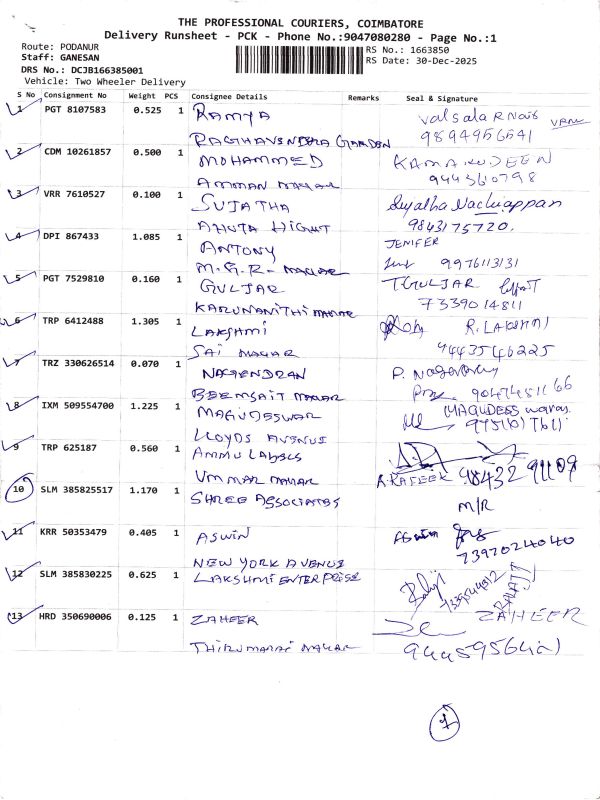 THE PROFESSIONAL COURIERS, COIMBATORE
Delivery Runsheet - PCK - Phone No.:9047080280 - Page No.:1
Route: PODANUR
Staff: GANESAN
DRS No.: DCJB166385001
Vehicle: Two Wheeler Delivery
RS No.: 1663850
RS Date: 30-Dec-2025
S No Consignment No Weight PCS Consignee Details Remarks Seal & Signature
1 PGT 8107583 0.525 1 RAMYA Valsala R Nair
RAGHAVENDRA GARDEN 9894956541
2 CDM 10261857 0.500 1 MOHAMMED KAMARUDEEN
AMMAN NAGAR 9443610798
3 VRR 7610527 0.100 1 SUJATHA Sujatha Nachiappan
9843175720.
4 DPI 867433 1.085 1 ANTONY JENIFER
M.G.R- NAGAR 9976113131
5 PGT 7529810 0.160 1 GULJAR T GULJAR
KARUNANITHI NAGAR 7339014811
6 TRP 6412488 1.305 1 LAKSHMI R. LAKSHMI
SAI NAGAR 9443546225
7 TRZ 330626514 0.070 1 NAGENDRAN P.
BEEMSAIT NAGAR
8 IXM 509554700 1.225 1 MAGUDESWAR
LLOYDS AVENUE
9 TRP 625187 0.560 1 AMMU LADIES A. RAFEEK 98432 91109
UMMAR NAGAR
10 SLM 385825517 1.170 1 SHREE ASSOCIATES M/R
11 KRR 50353479 0.405 1 ASWIN Aswin
NEW YORK AVENUE 7397024040
12 SLM 385830225 0.625 1 LAKSHMI ENTERPRISE Balaji 7339544012 BALAJI
13 HRD 350690006 0.125 1 ZAHEER ZAHEER
THIRUMARAI NAGAR